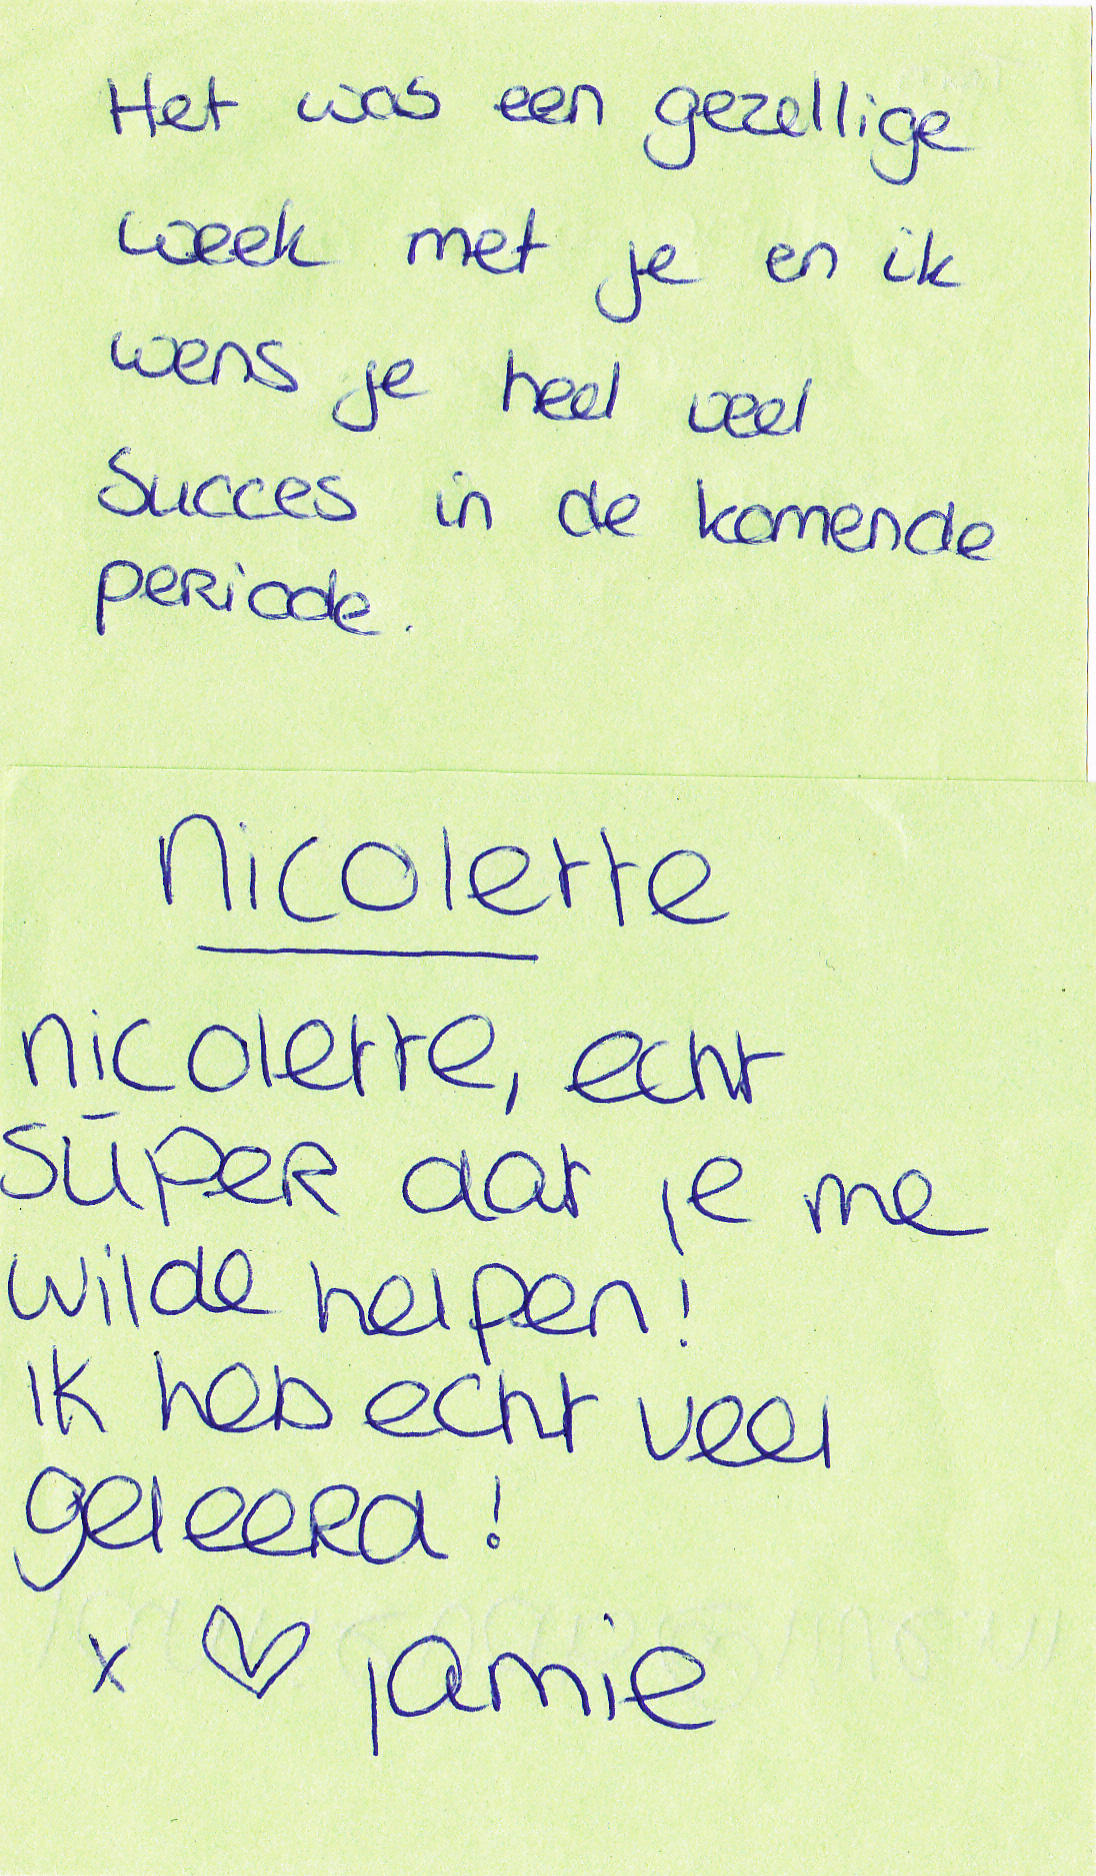 Het was een gezellige
week met je en ik
wens je heel veel
succes in de komende
periode.
Nicolette
nicolette, echt
sūper dat je me
wilde helpen!
Ik heb echt veel
geleerd!
x ♡ jamie